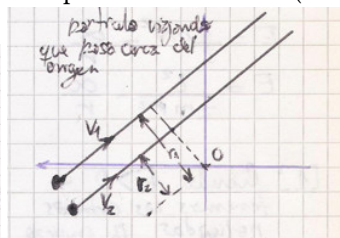 particula viajando
que pasa cerca del
origen
V₁
r₁
O
r₂
V₂